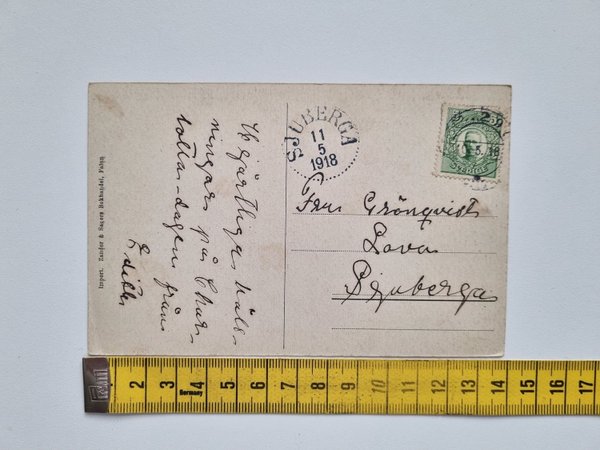 Hjärtliga häls
ningar på Char
lotta-dagen från
Edith
Import. Zander & Sagers Bokhandel, Falun
SJUBERGA
11
5
1918
Fru Grönqvist
Sjuberga
2 3 4 5 6 7 8 9 10 11 12 13 14 15 16 17
Germany